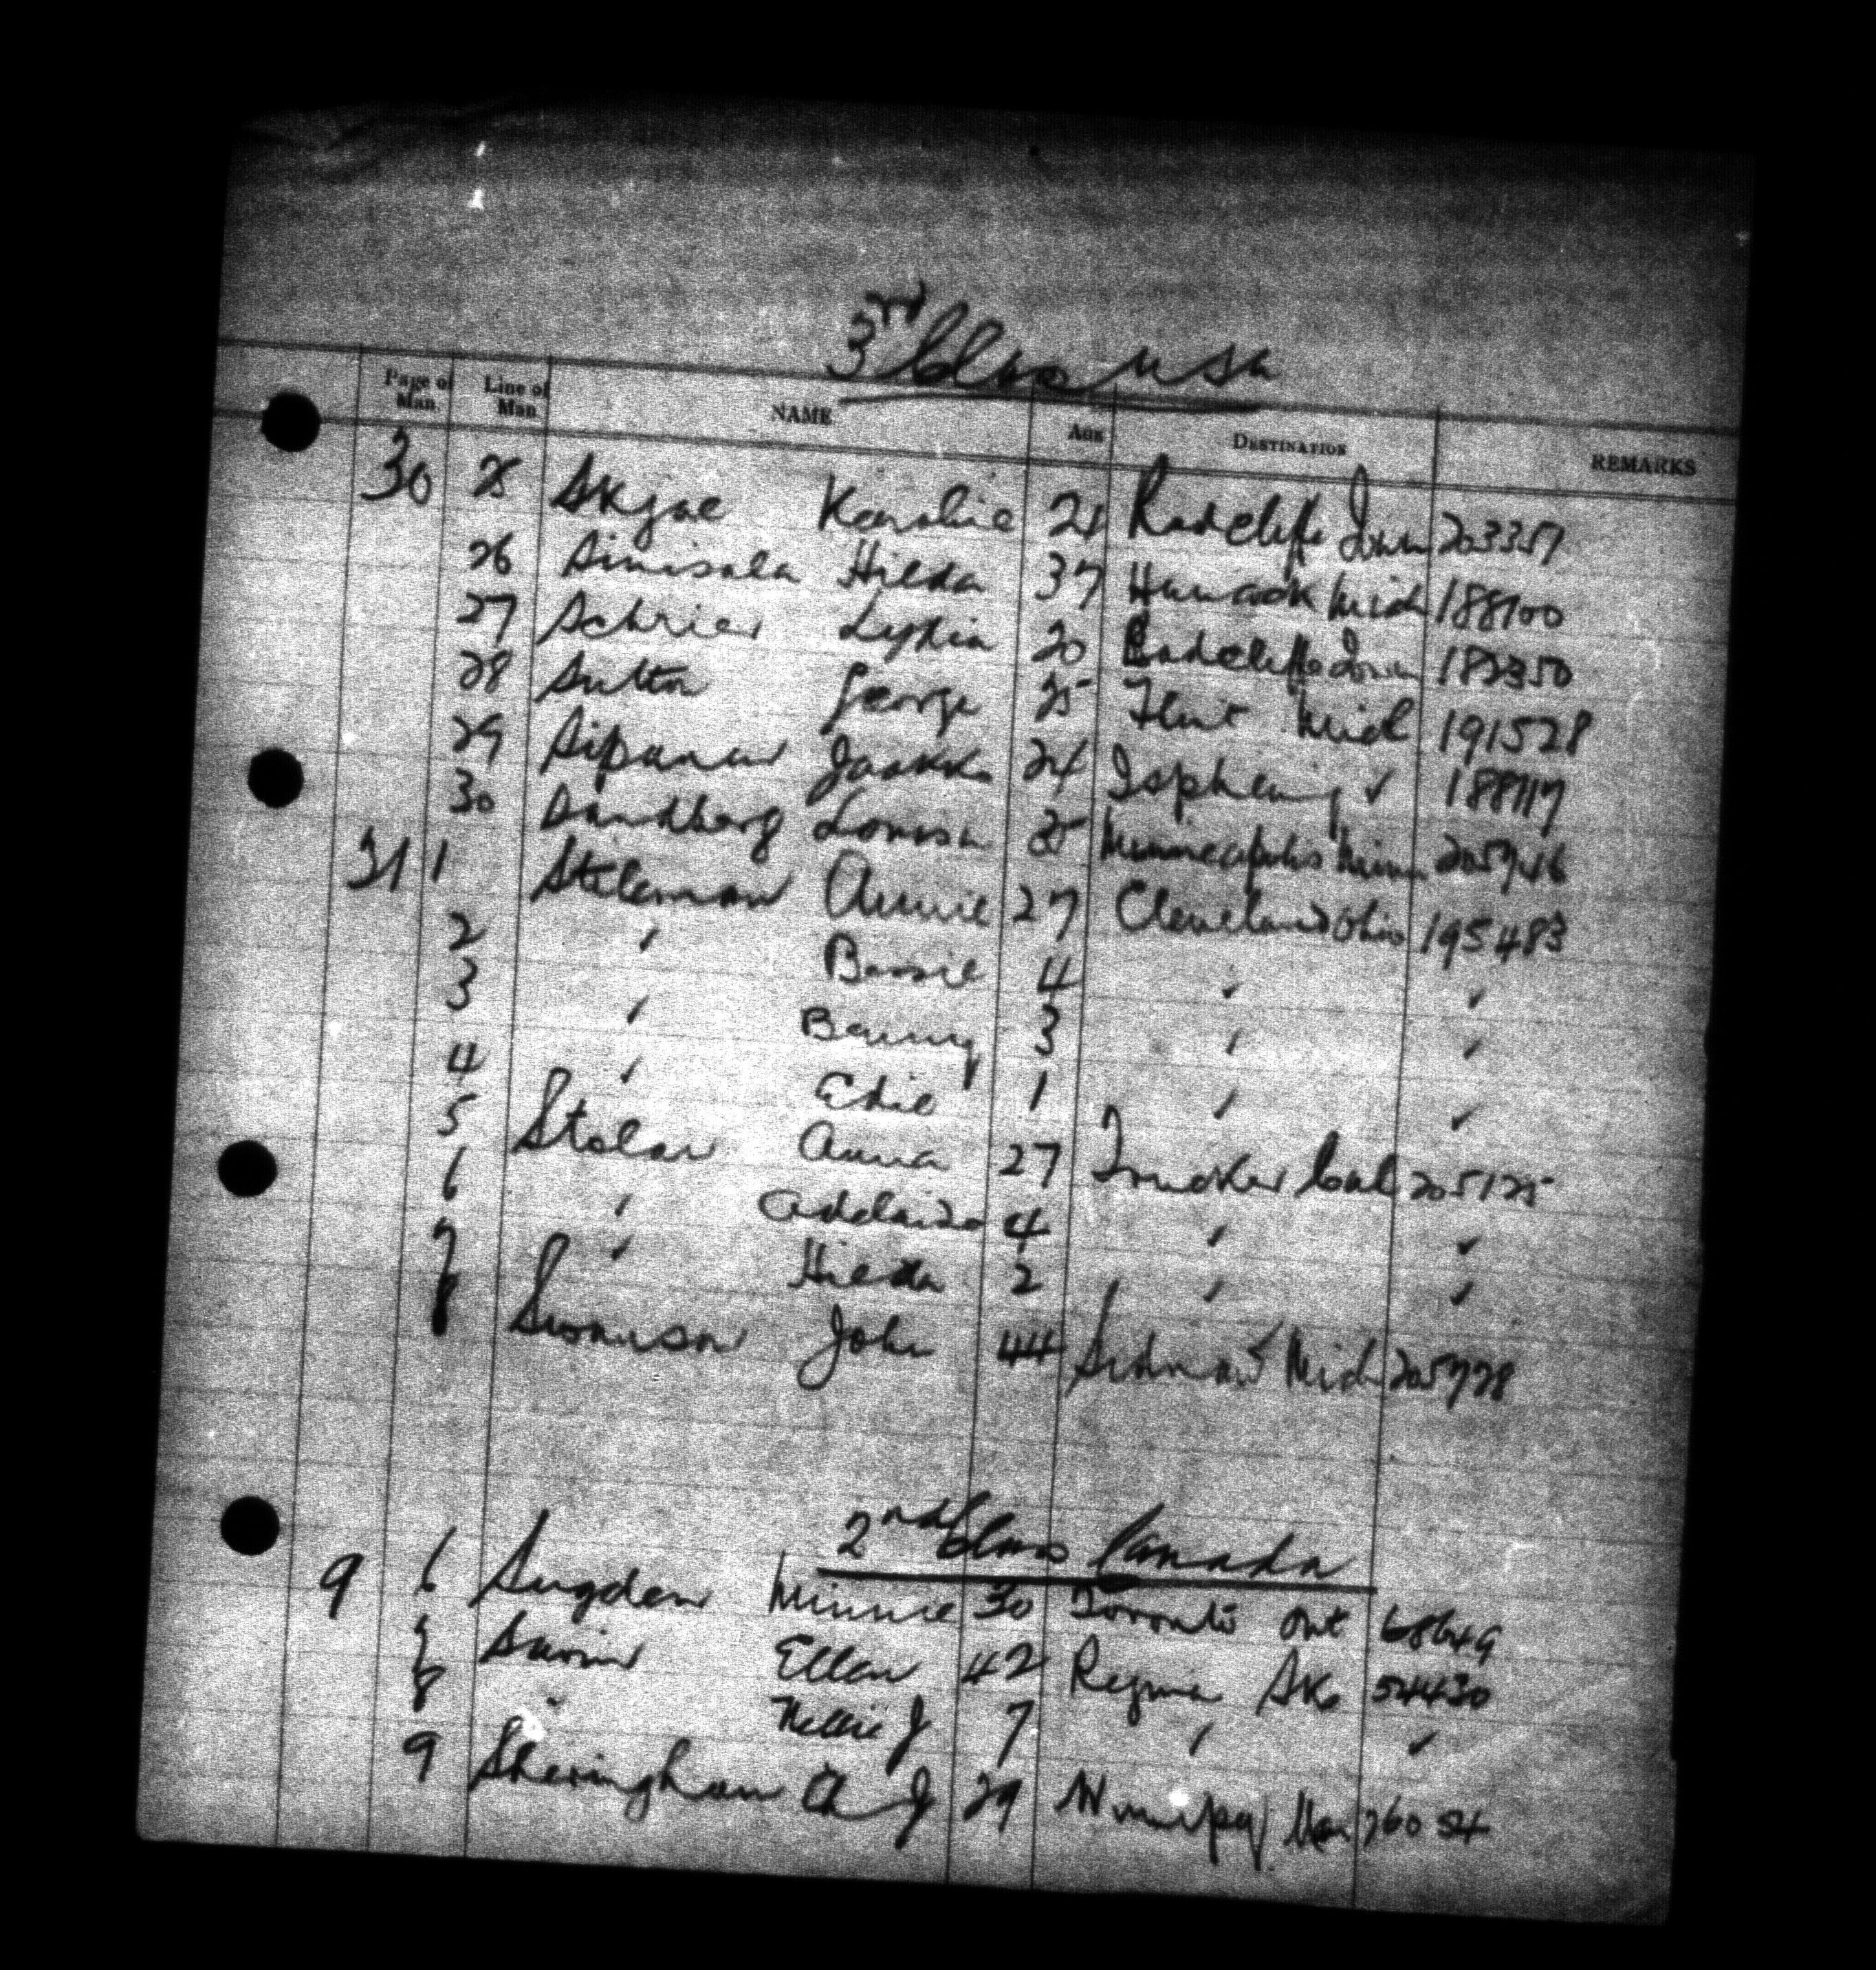 3rd Class USA
Page of Man. Line of Man. NAME AGE DESTINATION REMARKS
30 25 Skjae Karolie 21 Radcliffe Iowa 203357
26 Sinisala Hilda 37 Hancock Mich 188700
27 Schrier Lydia 20 Radcliffe Iowa 182350
28 Sutton George 25 Flint Mich 191528
29 Jaakko 24 ✓ 188717
30 Sandberg Lovisa 25 Minneapolis Minn 205746
31 1 Stileman Annie 27 Cleveland Ohio 195483
2 " Bessie 4 " "
3 " Benny 3 " "
4 " Edie 1 " "
5 Stolar Anna 27 Cal 205125
6 " Adelaide 4 " "
7 " Hilda 2 " "
8 Swanson John 44 Sidnaw Mich 205778
2nd Class Canada
9 6 Sugden Minnie 30 Toronto Ont 68649
7 Ellen 42 Regina Sk 54430
8 " Nellie J 7 " "
9 Sheringham Ch J 29 Winnipeg Man 76054